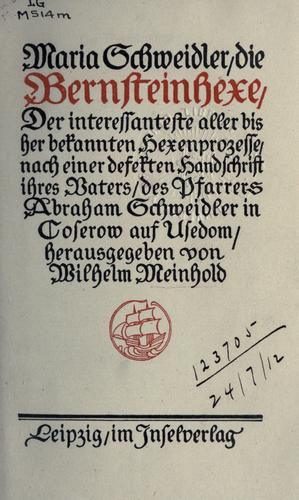 LG
M514m
Maria Schweidler/die
Bernsteinhexe/
Der interessanteste aller bis
her bekannten Hexenprozesse/
nach einer defekten Handschrift
ihres Vaters/des Pfarrers
Abraham Schweidler in
Coserow auf Usedom/
herausgegeben von
Wilhelm Meinhold
123705
24/7/12
Leipzig/im Inselverlag